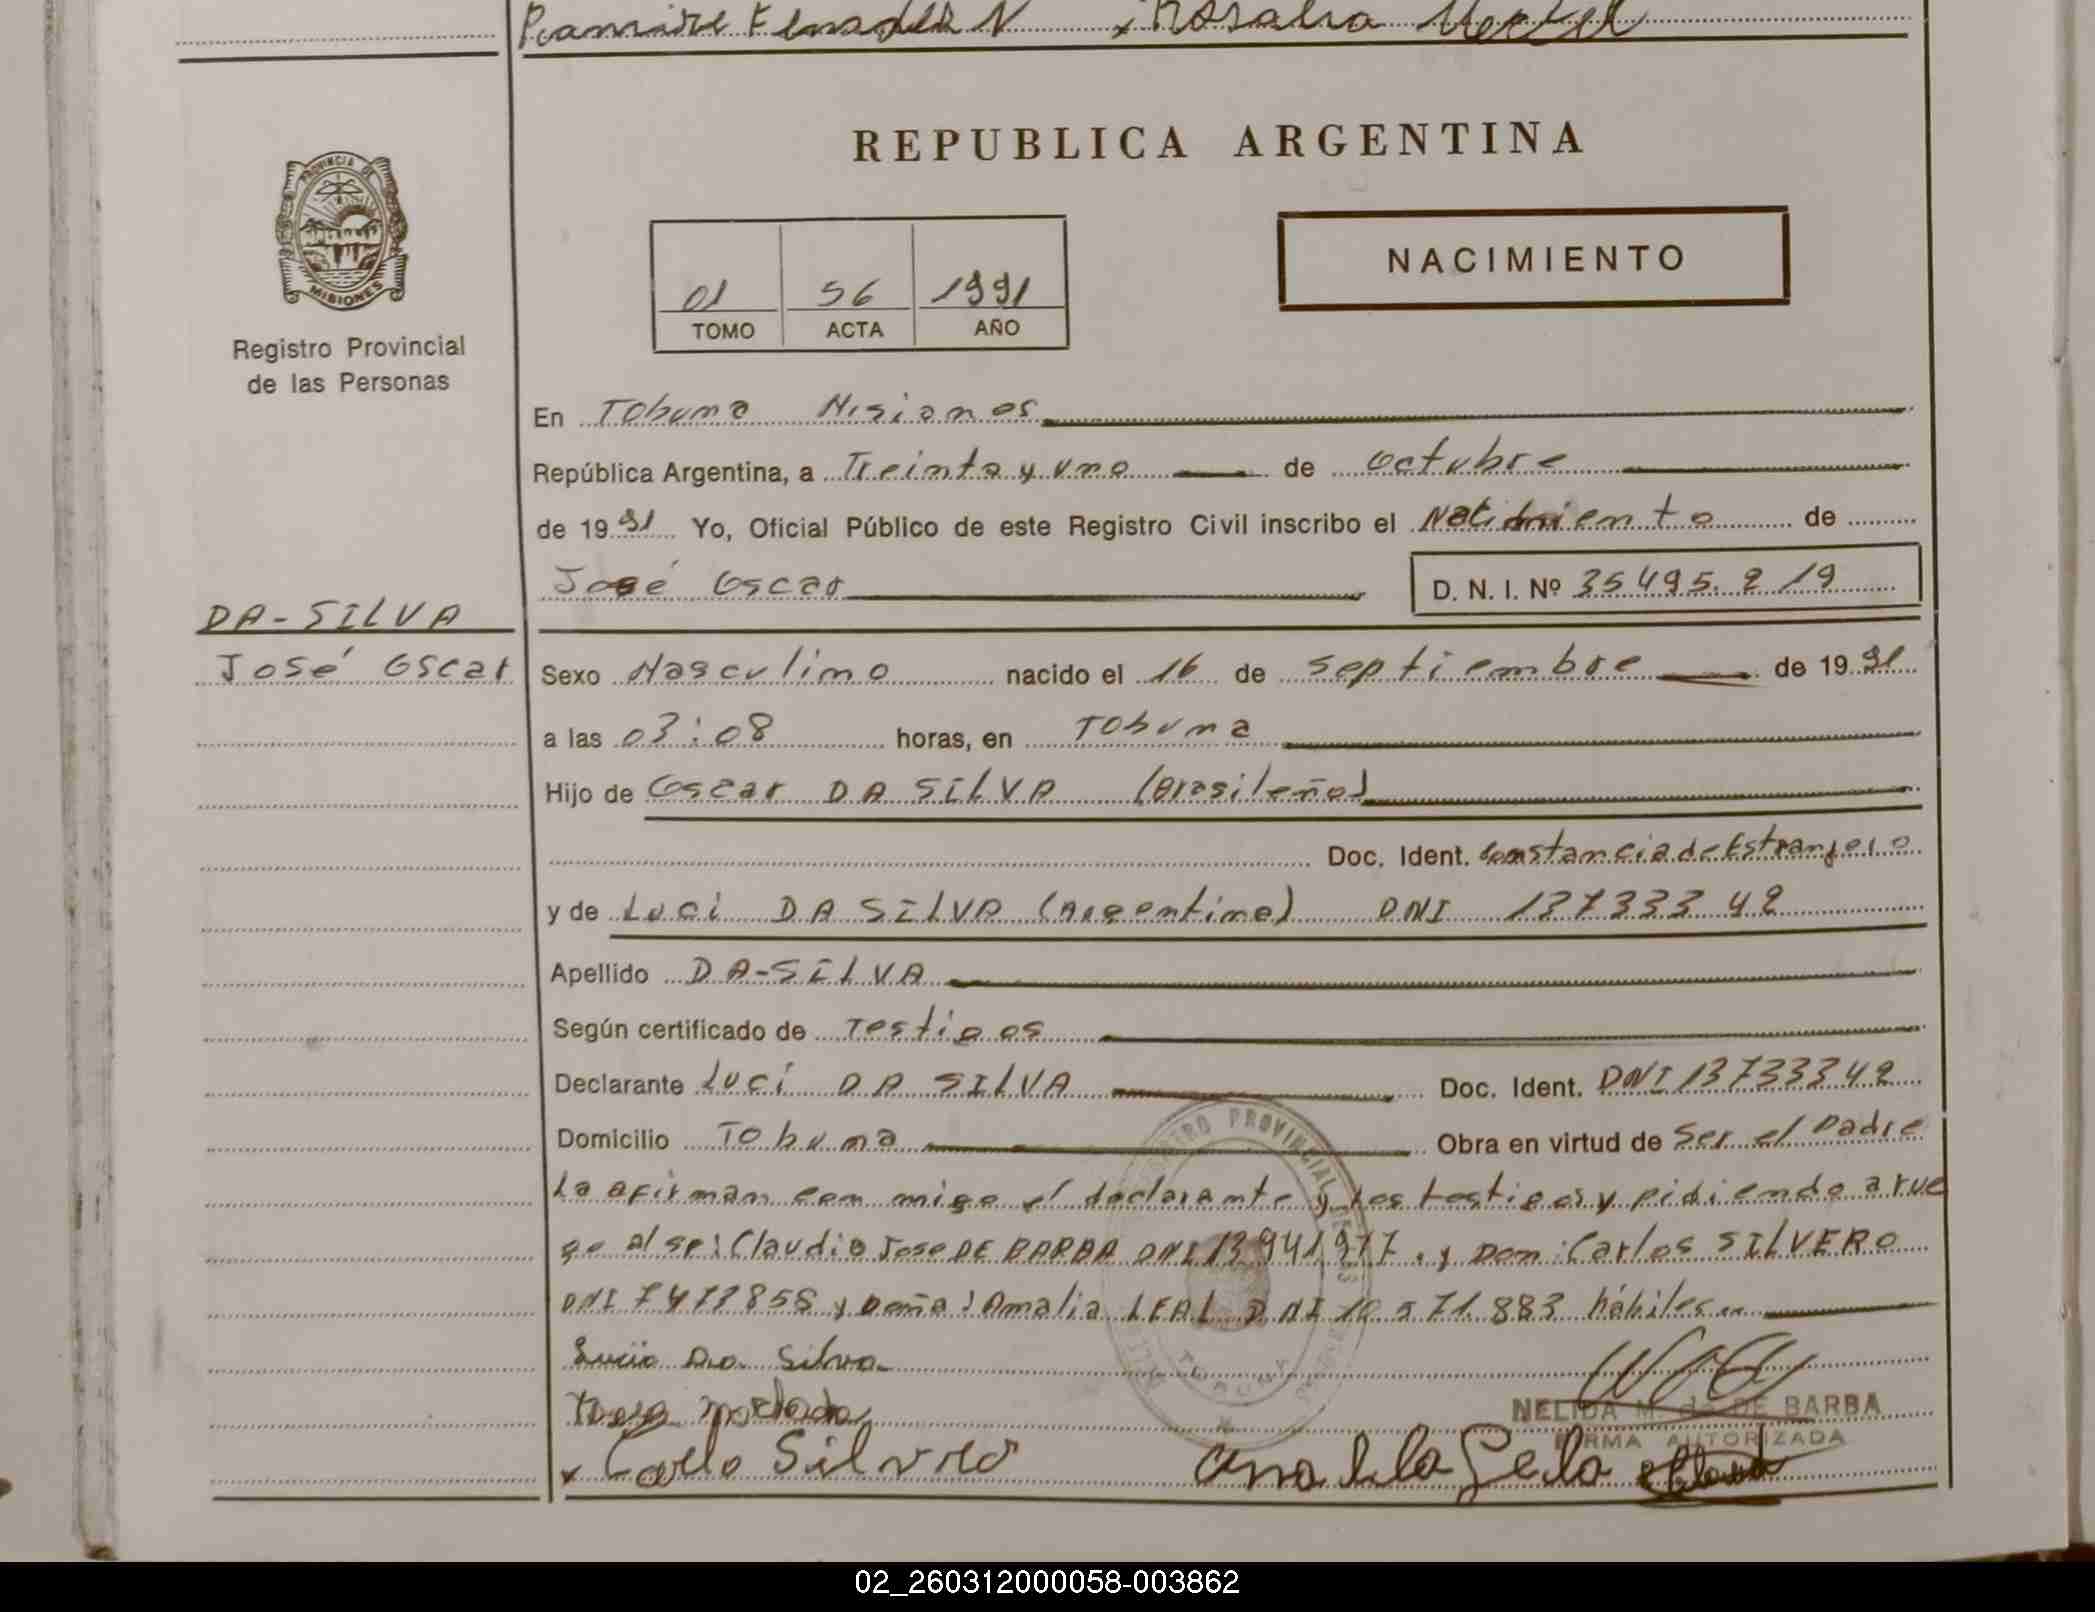 Rosalia
PROVINCIA DE
MISIONES
Registro Provincial
de las Personas
REPUBLICA ARGENTINA
01 56 1991
TOMO ACTA AÑO
NACIMIENTO
En Tobuna Misiones
República Argentina, a Treinta y uno de octubre
de 1991 Yo, Oficial Público de este Registro Civil inscribo el Nacimiento de
José Oscar D. N. I. Nº 35495.219
DA-SILVA
José Oscar
Sexo Masculino nacido el 16 de septiembre de 1991
a las 03:08 horas, en Tobuna
Hijo de Oscar DA SILVA (Brasileño)
Doc. Ident. Constancia de Estranjero
y de Luci DA SILVA (Argentina) DNI 13733342
Apellido DA-SILVA
Según certificado de Testigos
Declarante Luci DA SILVA Doc. Ident. DNI 13733342
Domicilio Tobuna Obra en virtud de Ser el Padre
La afirman con migo el declarante y los testigos y pidiendo a rue
go al sr: Claudio Jose DE BARBA DNI 13941977. y Don: Carlos SILVERO
DNI 7473858 y Doña: Amalia LEAL DNI 10.571.883 hábiles
Lucio Da Silva
NELIDA M. de DE BARBA
FIRMA AUTORIZADA
REGISTRO PROVINCIAL DE LAS
TOBUNA
02_260312000058-003862